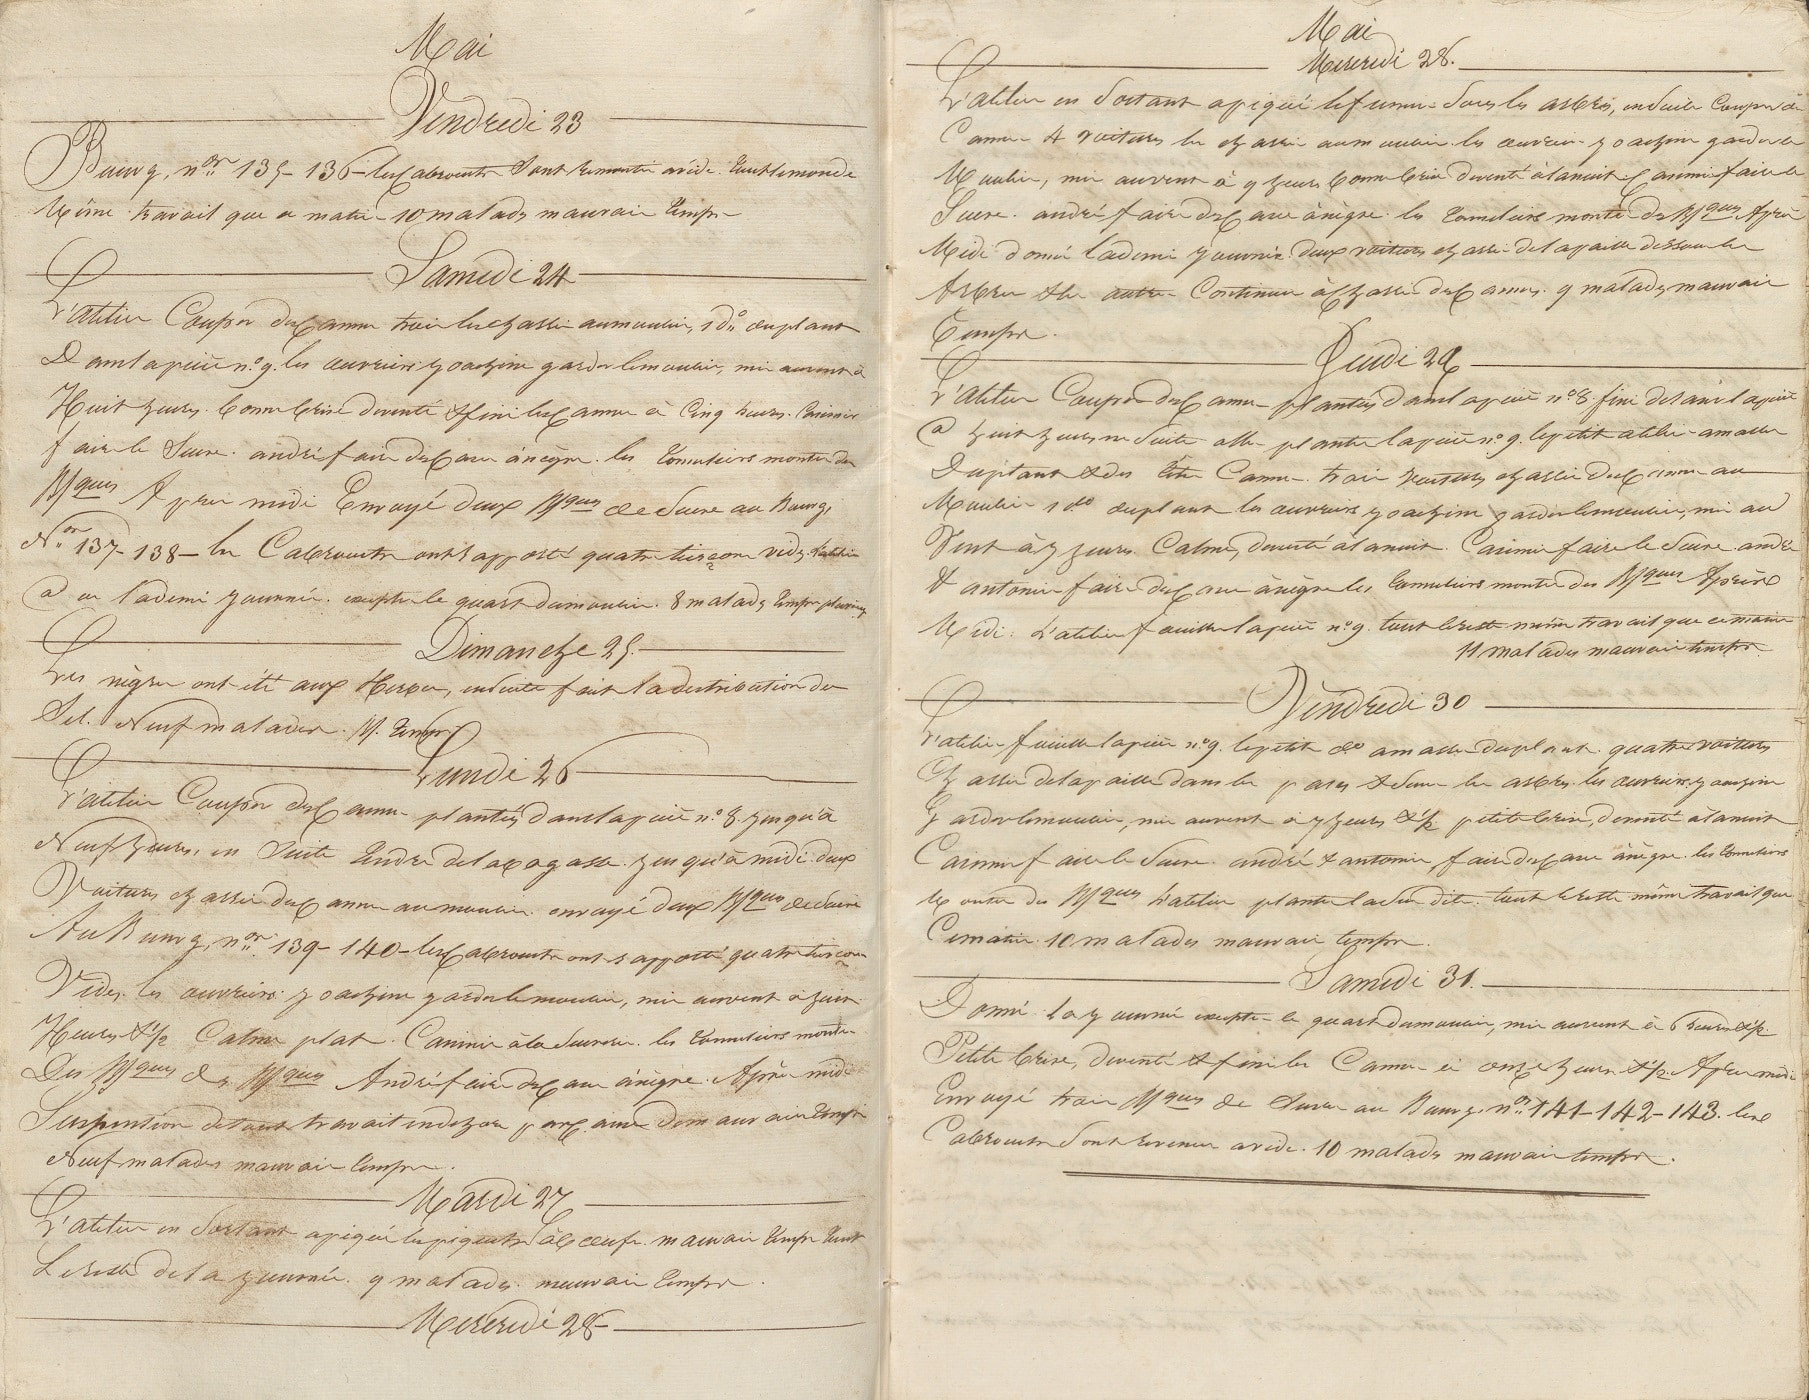 Mai
Vendredi 23
Bourg, nos 135-136- les Cabrouets Sont Remontés avide. tout le monde
Même travail que ce matin 10 malades mauvais temps
Samedi 24
L'atelier Coupér des Cannes trois les chassér au moulin, 1 do du plant
Dans la pièce no. 9. les ouvriers yoachim gardér le moulin, mis au vent à
Huit heures. bonne brise deventé & fini les Cannes à Cinq heures. Casimir
faire le Sucre. andré faire des Case à nègre. les tonneliers monter des
Bques Après midi Envoyé deux Bques de Sucre au Bourg,
Nos 137-138- les Cabrouets ont rapporté quatre tierçons vides, l'atelier
a eu la demi journée. excepté le quart du moulin. 8 malades temps pluvieux
Dimanche 25.
Les nègres ont été aux Herbes, ensuite fait la distribution du
Sel. Neuf malades. M. temps
Lundi 26
L'atelier Coupér des Cannes plantées dans la pièce no. 8. jusqu'à
Neuf heures, en Suite tendre de la bagasse jusqu'à midi. deux
Voitures chassér des Cannes au moulin. envoyé deux Bques de Sucre
Au Bourg, nos 139-140- les Cabrouets ont rapporté quatre tierçons
Vides. les ouvriers. yoachim gardér le moulin, mis au vent à huit
Heures & 1/2 Calme plat. Casimir à la Sucrerie. les tonneliers monter
Des Bques des Bques André faire des Case à nègre. Après midi
Suspention de tout travail en dehors par Cause du mauvais temps
Neuf malades mauvais temps.
Mardi 27
L'atelier en Sortant a piqué les piquets à boeufs. mauvais temps tout
Le reste de la journée. 9 malades. mauvais temps.
Mercredi 28
Mai
Mercredi 28.
L'atelier en Sortant a piqué le fumier Sous les arbres, ensuite Coupér de
Cannes 4 voitures les chassér au moulin. les ouvriers. yoachim gardér le
Moulin, mis au vent à 9 heures bonne brise deventé à la nuit Casimir faire le
Sucre. andré faire des Case à nègre. les tonneliers monté des Bques Après
Midi donné la demi journée. deux voitures chassér de la paille dessous les
Arbres & les autres Continuer à Chassér des Cannes. 9 malades mauvais
Temps.
Jeudi 29
L'atelier Coupér des Cannes plantées dans la pièce no 8. fini de la pièce
a huit heures ensuite allér planter la pièce no. 9. le petit atelier amasser
Du plant & des tête Cannes. trois voitures chassér des Cannes au
Moulin 1 do du plant les ouvriers yoachim gardér le moulin, mis au
Vent à 7 heures. Calme, deventé à la nuit. Casimir faire le Sucre. andré
& antoine faire des Case à nègre les tonneliers monter des Bques Après
Midi. L'atelier fouiller la pièce no. 9. tout le reste même travail que ce matin
11 malades mauvais temps.
Vendredi 30
L'atelier fouiller la pièce no. 9. le petit do amasser du plant. quatre voitures
Chassér de la paille dans les parcs & Sous les arbres. les ouvriers. yoachim
Gardér le moulin, mis au vent à 7 heures & 1/2 petite brise, deventé à la nuit
Casimir faire le Sucre. andré & antoine, faire des Case à nègre. les tonneliers
Monter des Bques L'atelier planter la Sus dite. tout le reste même travail que
Ce matin. 10 malades mauvais temps.
Samedi 31.
Donné la journée excepté le quart du moulin, mis au vent à 6 heures & 1/2.
Petite brise, deventé & fini les Cannes à onze heures & 1/2. Après midi
Envoyé trois Bques de Sucre au Bourg. nos 141-142-143. les
Cabrouets Sont revenus avide. 10 malades mauvais temps.